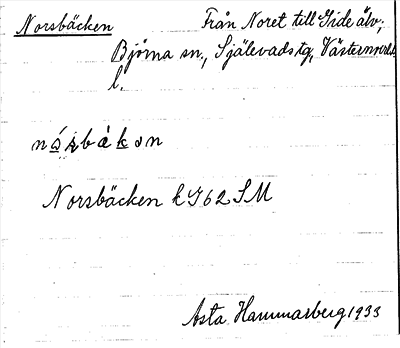 Norsbäcken Från Noret till Gide älv;
Björna sn., Själevads tg, Västernorrl.
l.
Norsbäcken k J 62 SM
Asta Hammarberg 1933